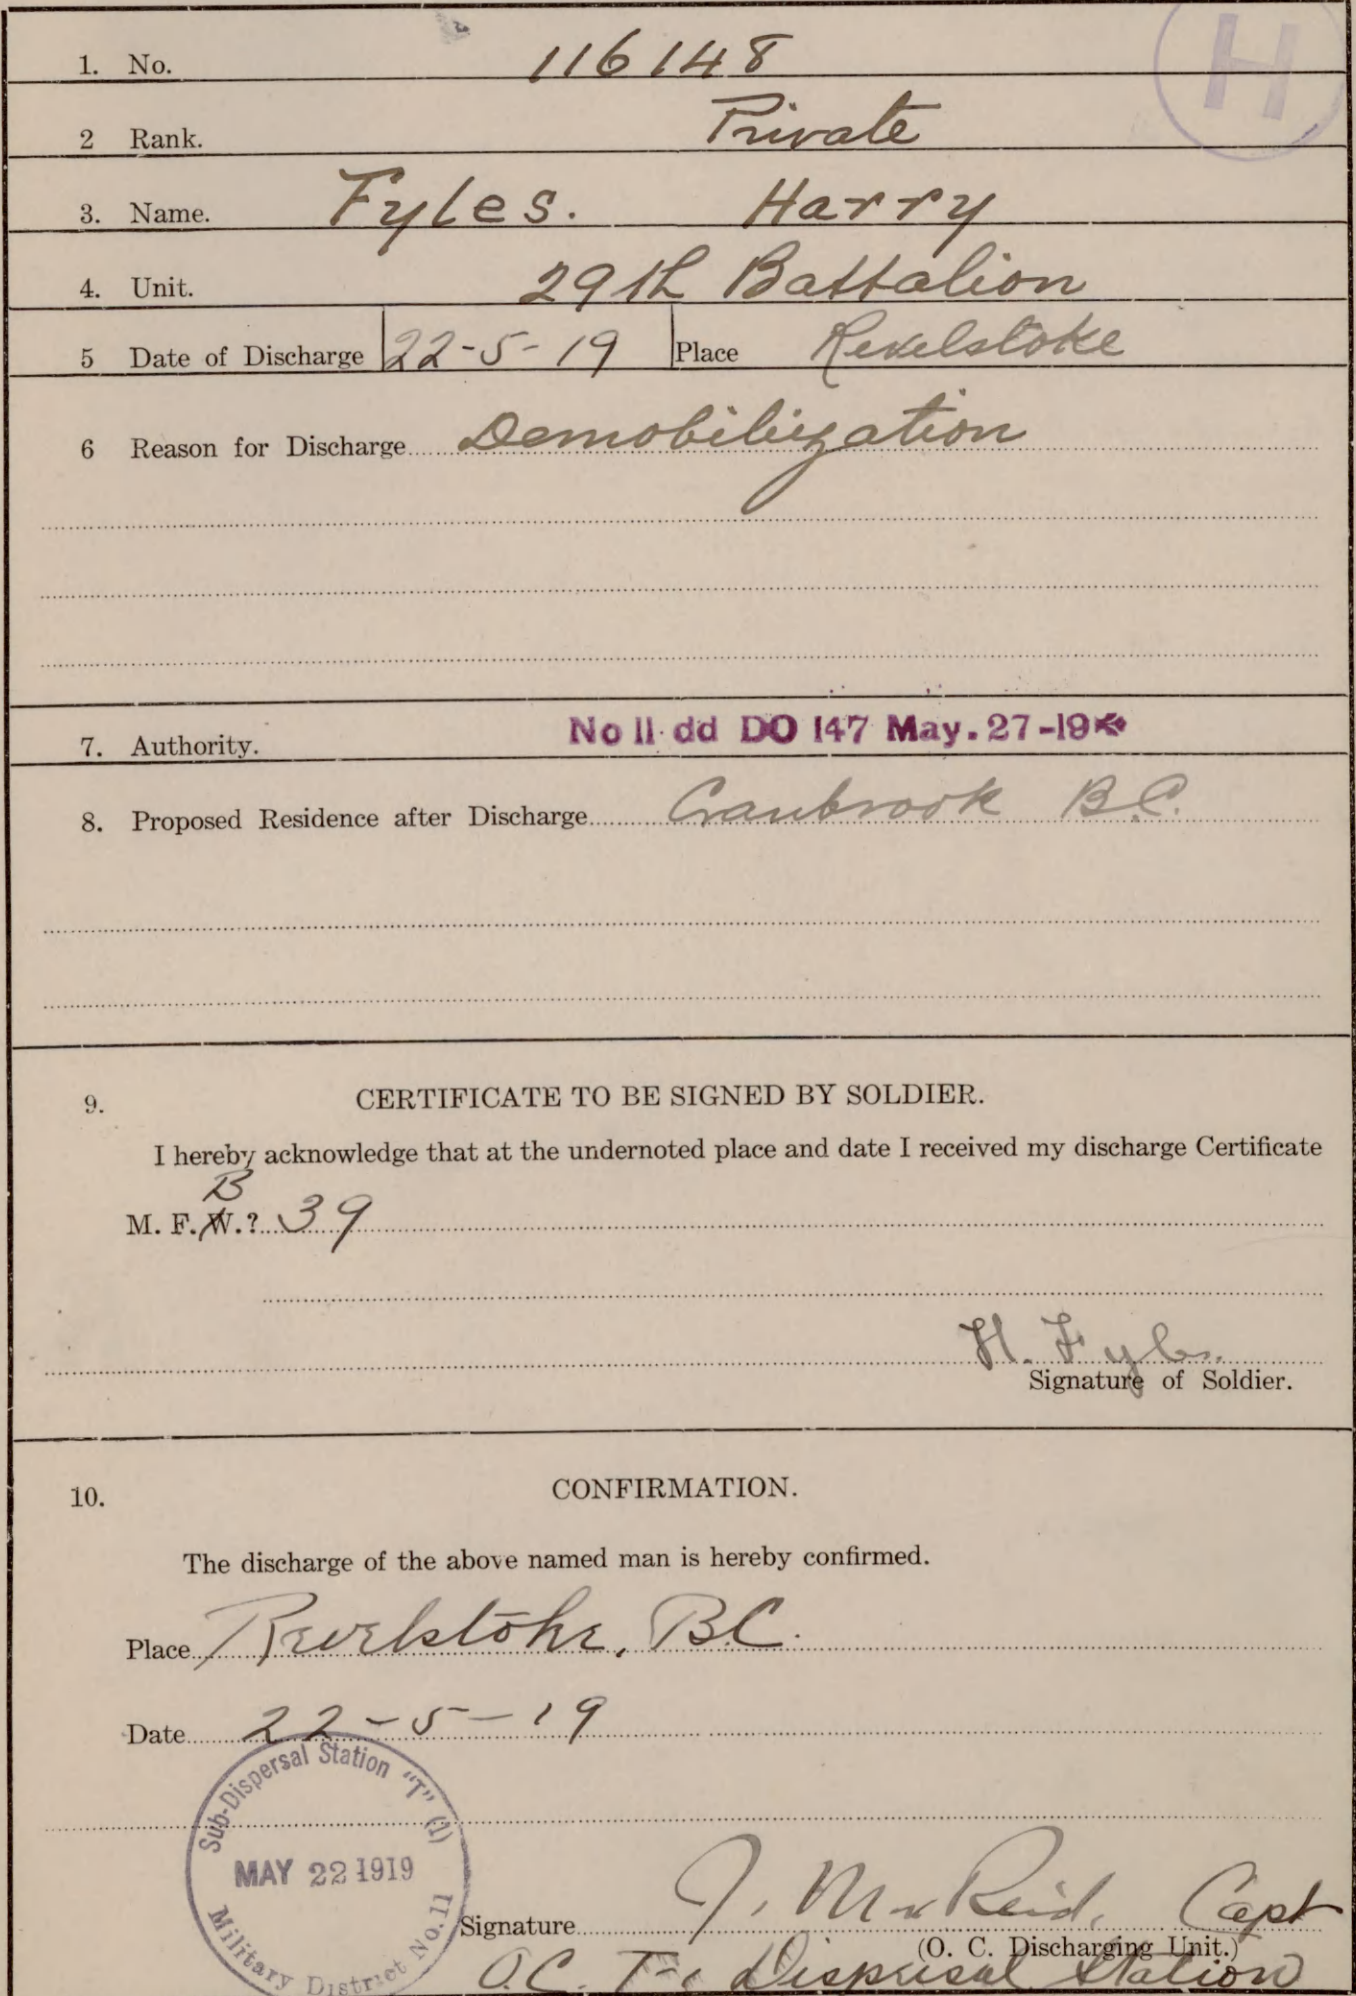 H
1. No. 116148
2 Rank. Private
3. Name. Fyles. Harry
4. Unit. 29th Battalion
5 Date of Discharge 22-5-19 Place Revelstoke
6 Reason for Discharge Demobilization
7. Authority. No 11 dd DO 147 May. 27-19
8. Proposed Residence after Discharge Cranbrook B.C.
9. CERTIFICATE TO BE SIGNED BY SOLDIER.
I hereby acknowledge that at the undernoted place and date I received my discharge Certificate
B
M. F. W.? 39
H. Fyles.
Signature of Soldier.
10. CONFIRMATION.
The discharge of the above named man is hereby confirmed.
Place Revelstoke, B.C.
Date 22-5-19
Sub-Dispersal Station "T" (1)
MAY 22 1919
Military District No. 11
Signature Reid, Capt
(O. C. Discharging Unit.)
O.C. Dispersal Station